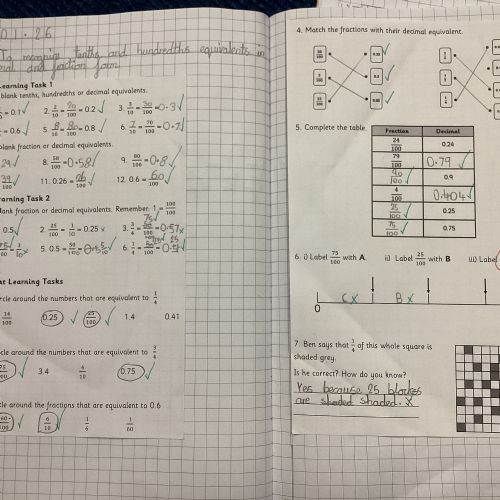 01.26
To recognise tenths and hundredths equivalents in
and fraction form.
Learning Task 1
blank tenths, hundredths or decimal equivalents.
= 0.1 2. 2/10 = 20/100 = 0.2 3. 3/10 = 30/100 = 0.3
= 0.6 5. 8/10 = 80/100 = 0.8 6. 7/10 = 70/100 = 0.7
blank fraction or decimal equivalents.
29 8. 58/100 = 0.58 9. 80/100 = 0.8
39/100 11. 0.26 = 26/100 12. 0.6 = 60/100
Learning Task 2
blank fraction or decimal equivalents. Remember: 1 = 100/100
0.5 2. 25/100 = 1/10 = 0.25 x 3. 3/4 =
5. 0.5 = 50/100 = 6. 1/4 =
Learning Tasks
circle around the numbers that are equivalent to 1/4
14/100 0.25 25/100 1.4 0.41
circle around the numbers that are equivalent to 3/4
75/100 3.4 4/10 0.75
circle around the fractions that are equivalent to 0.6
60/100 6/10 1/6 1/60
4. Match the fractions with their decimal equivalent.
5. Complete the table.
Fraction Decimal
24/100 0.24
79/100 0.79
90/100 0.9
4/100 0.404
25/100 0.25
75/100 0.75
6. i) Label 75/100 with A ii) Label 25/100 with B iii) Label
C x B x
0
7. Ben says that 3/4 of this whole square is
shaded grey.
Is he correct? How do you know?
Yes because 25 blockes
are shaded shaded. x